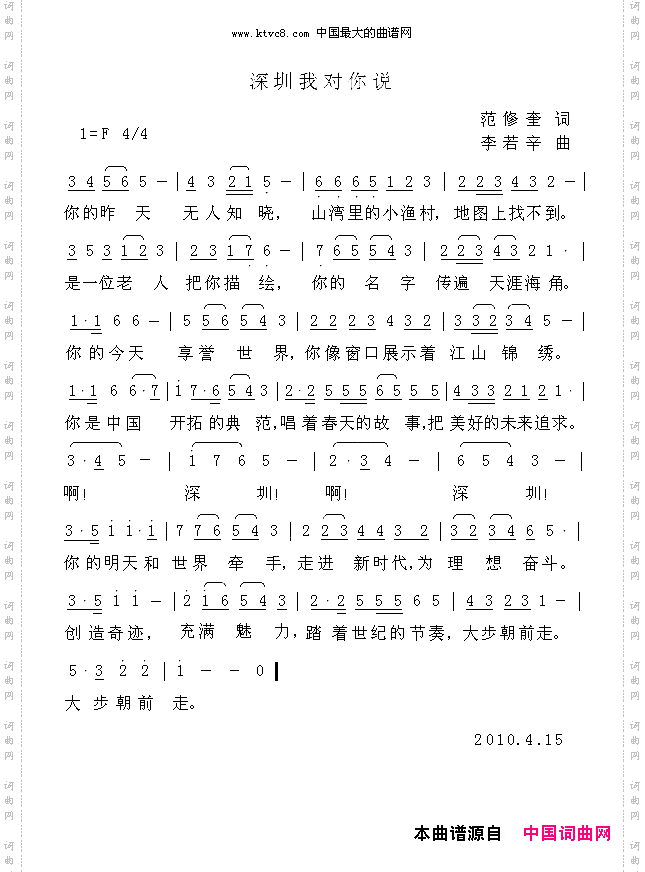 www.ktvc8.com 中国最大的曲谱网
深圳我对你说
范修奎 词
1=F 4/4
李若辛 曲
3 4 5 6 5 - | 4 3 2 1 5 - | 6 6 6 5 1 2 3 | 2 2 3 4 3 2 - |
你的昨 天 无人知 晓, 山湾里的小渔村, 地图上找不到。
3 5 3 1 2 3 | 2 3 1 7 6 - | 7 6 5 5 4 3 | 2 2 3 4 3 2 1 · |
是一位老 人 把你描 绘, 你的 名 字 传遍 天涯海 角。
1 · 1 6 6 - | 5 5 6 5 4 3 | 2 2 2 3 4 3 2 | 3 3 2 3 4 5 - |
你 的今天 享誉 世 界, 你像窗口展示着 江山 锦 绣。
1 · 1 6 6 · 7 | i 7 · 6 5 4 3 | 2 · 2 5 5 5 6 5 5 5 | 4 3 3 2 1 2 1 · |
你是中国 开拓的典 范,唱着春天的故 事,把美好的未来追求。
3 · 4 5 - | i 7 6 5 - | 2 · 3 4 - | 6 5 4 5 - |
啊! 深 圳! 啊! 深 圳!
3 · 5 i i · i | 7 7 6 5 4 3 | 2 2 3 4 4 3 2 | 3 2 3 4 6 5 · |
你的明天和 世界 牵 手, 走进 新时代, 为 理 想 奋斗。
3 · 5 i i - | 2 i 6 5 4 3 | 2 · 2 5 5 5 6 5 | 4 3 2 3 1 - |
创造奇迹, 充满 魅 力, 踏 着世纪的节奏, 大步朝前走。
5 · 3 2 2 | i - - 0 |
大 步朝前 走。
2010.4.15
本曲谱源自 中国词曲网